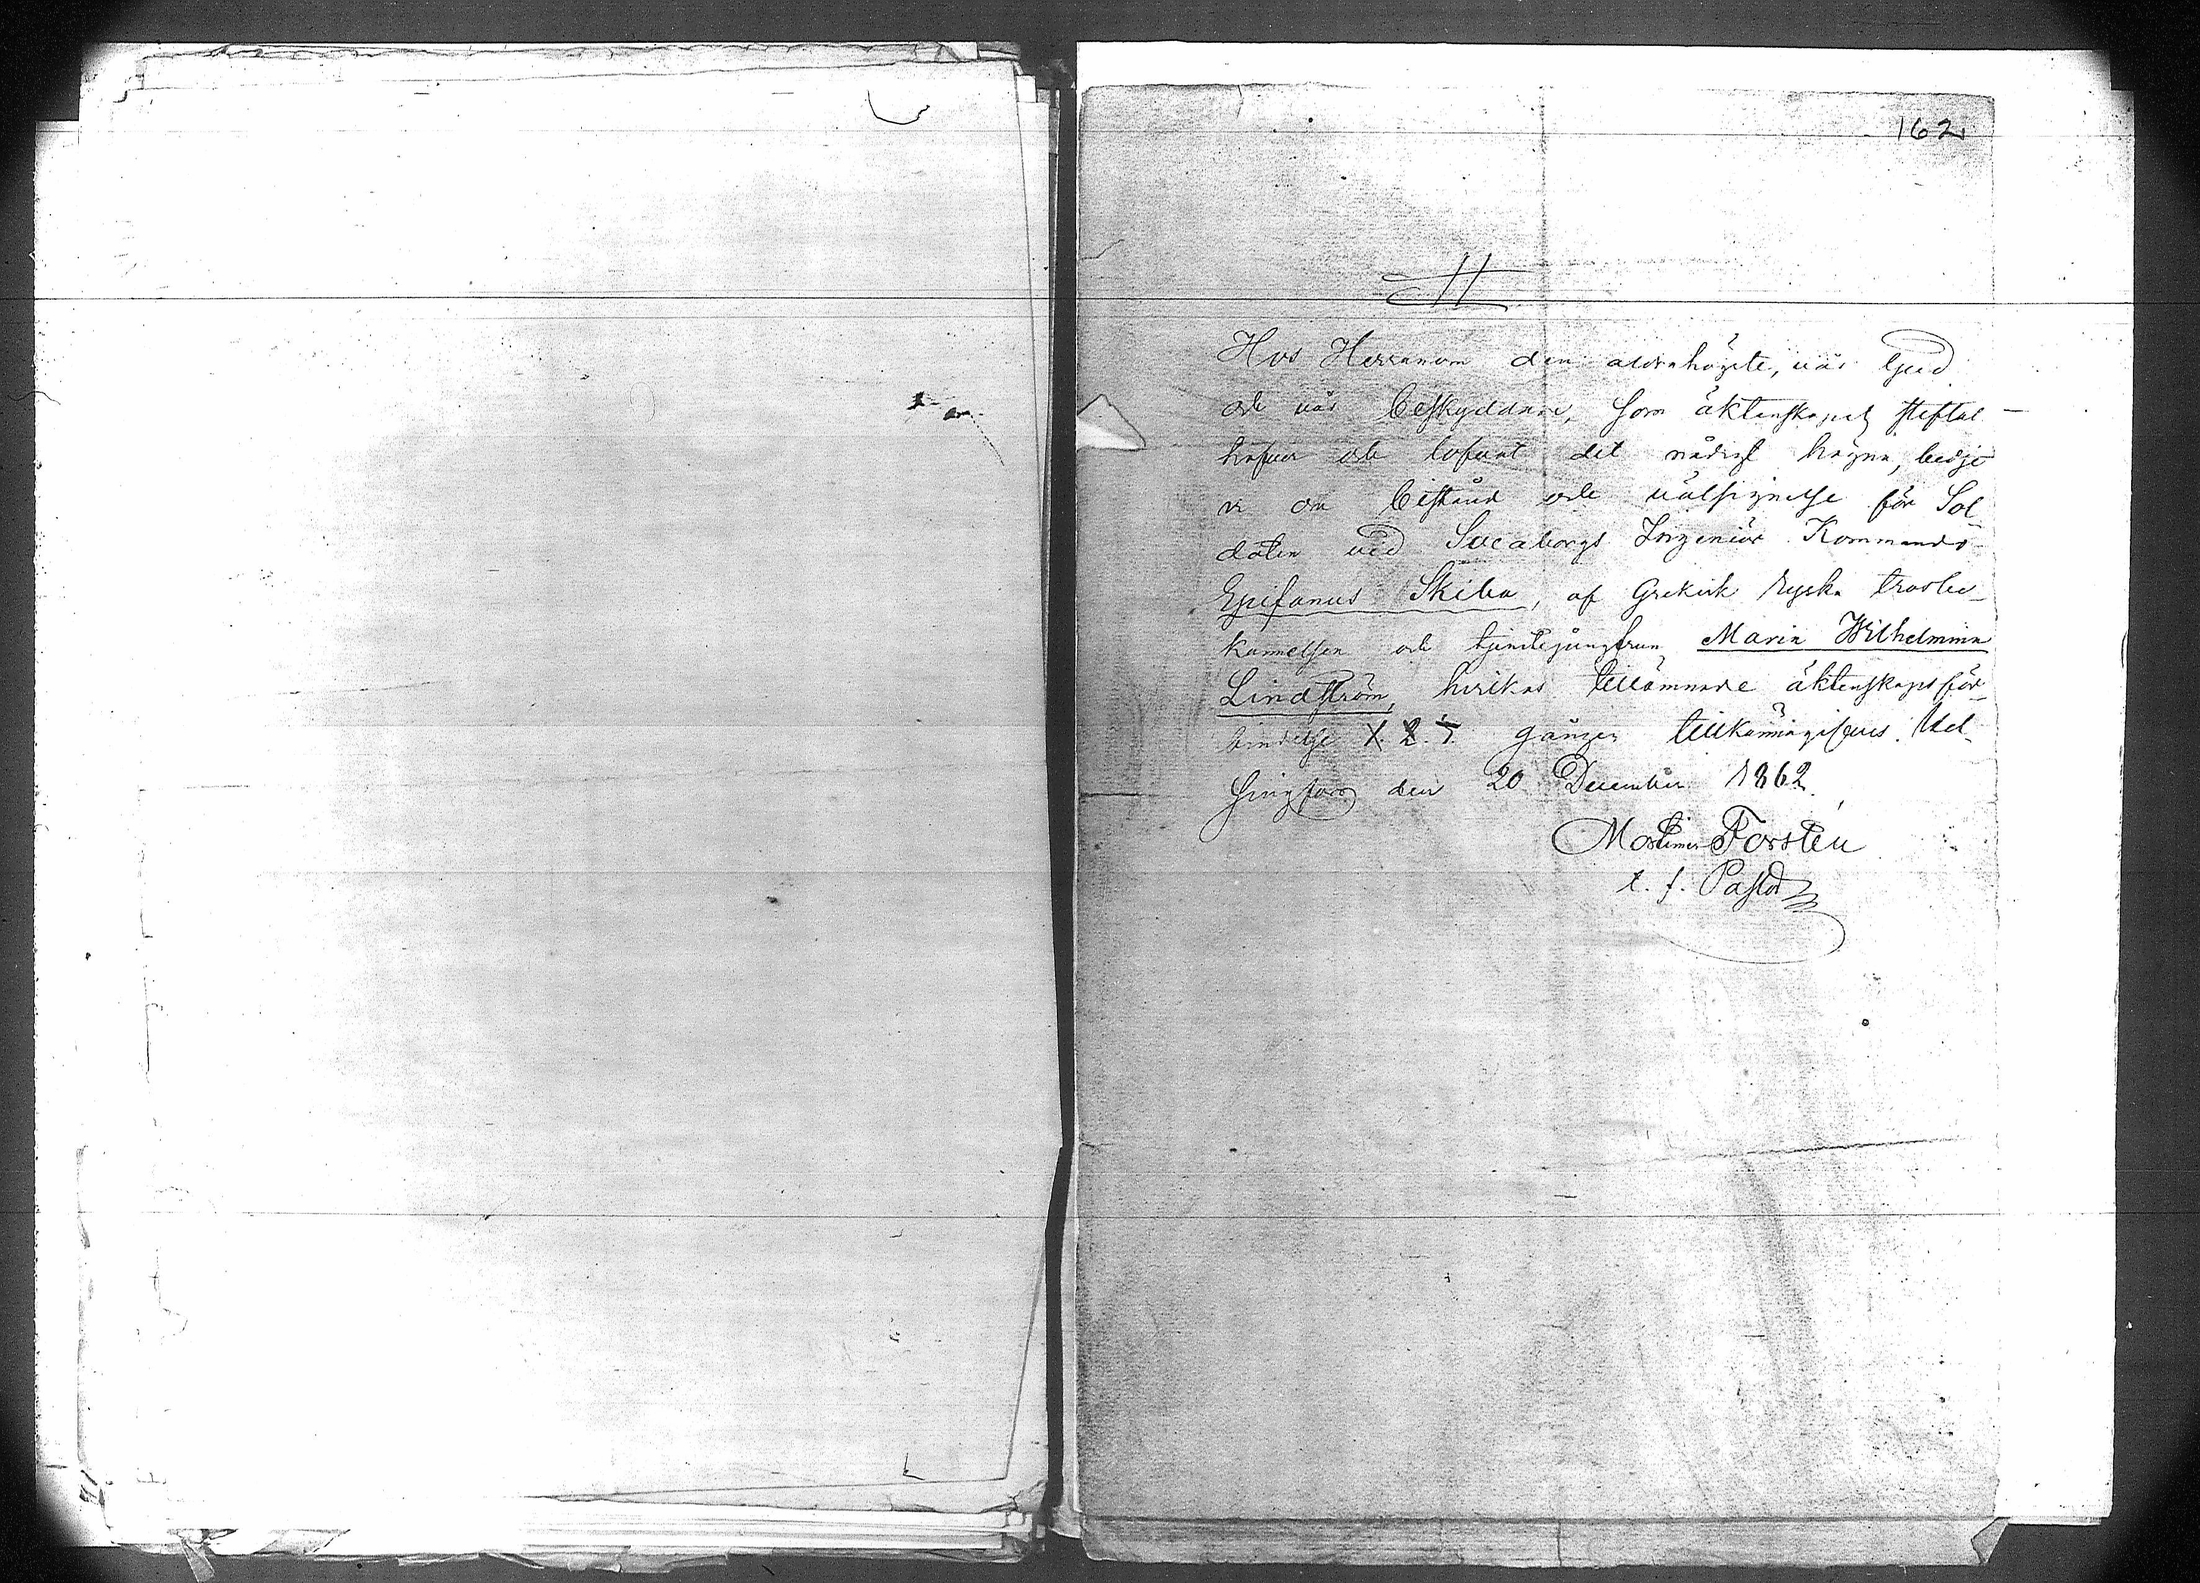 162
Hos Herranom den aldrahögste, vår Gud
och vår beskyddare, som äktenskapet stiftat
hafver och lofvat det nådigt hägna, bedje
vi om bistånd och välsignelse för Sol
daten vid Sveaborgs Ingeniör Kommando
Epifanus Skiba, af Grekisk Ryska trosbe-
kännelsen och tjenstejungfrun Maria Wilhelmina
Lindström, hvilkas tillämnade äktenskapsför-
bindelse X. 2. 3. gången tillkännagifves. Hel-
singfors den 20 December 1862.
Mortimer Forstén
t. f. Pastor